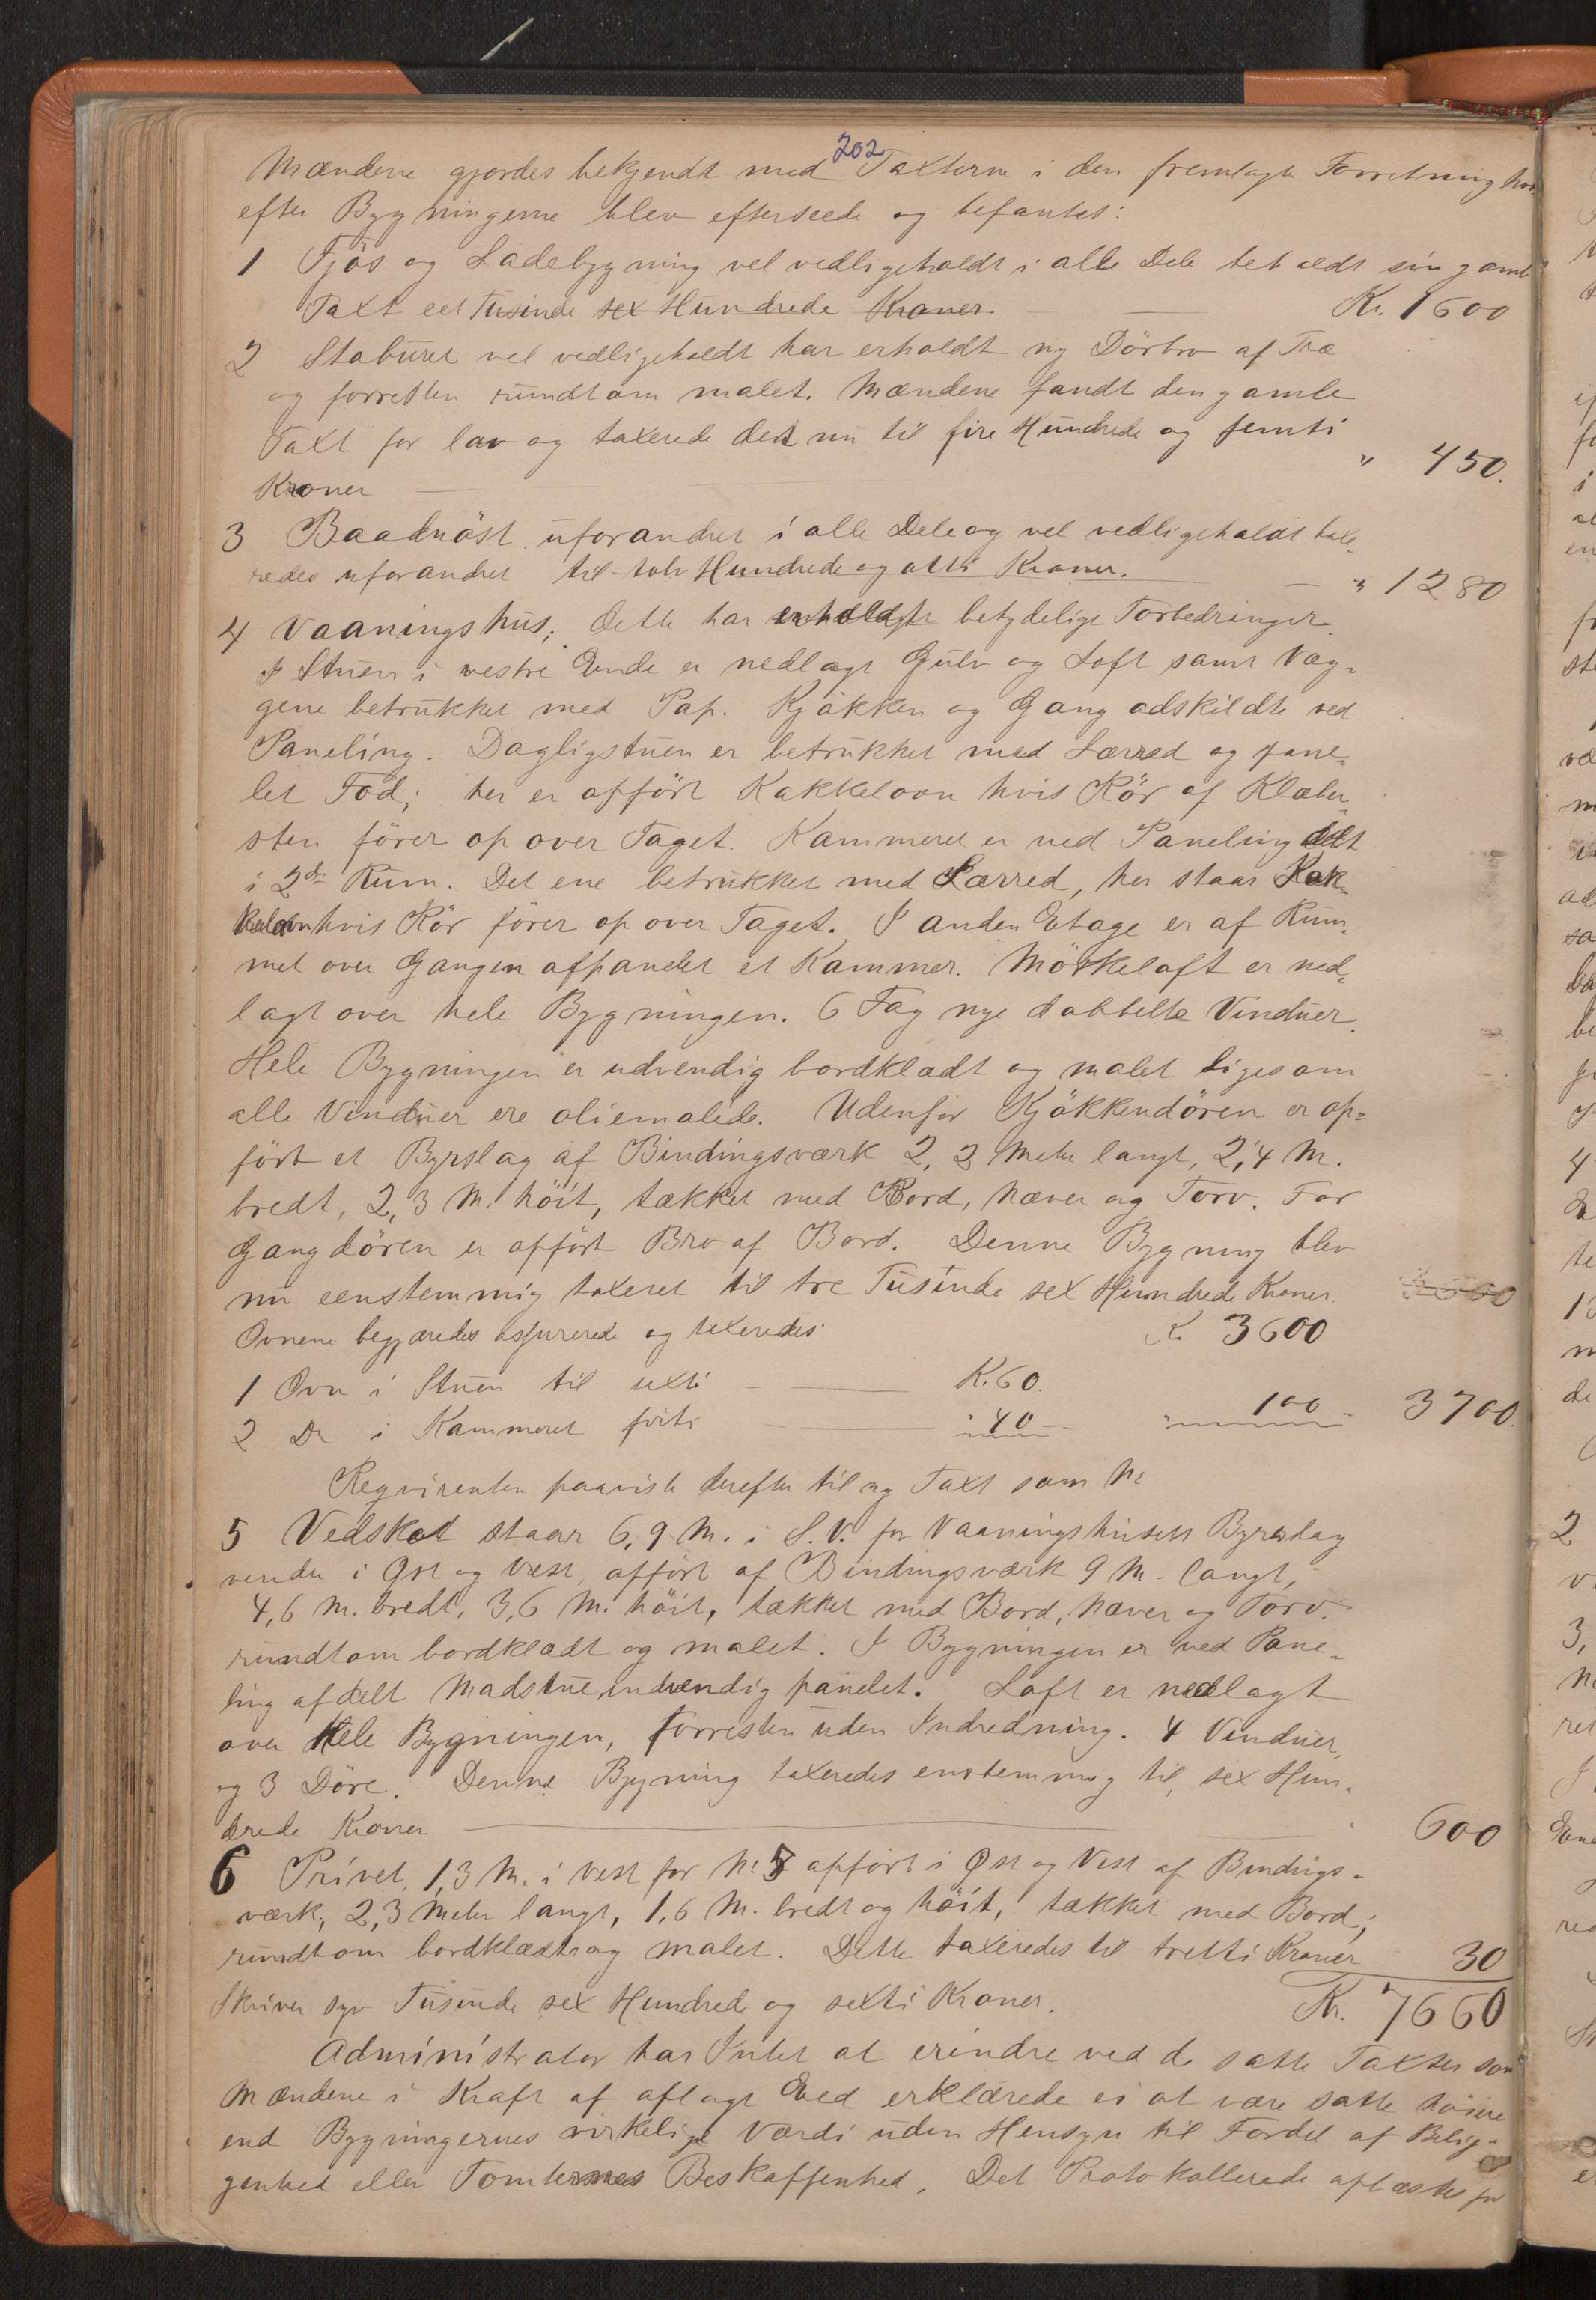 202
Mændene gjordes bekjendt med Taxterne i den fremlagte Forretning hvor
efter Bygningerne blev efterseede og befantes:
1 Fjøs og Ladebygning vel vedligeholdt i alle Dele beholdt sin gamle
Taxt eet Tusinde sex Hundrede Kroner. Kr. 1600
2 Staburet vel vedligeholdt har erholdt ny Dörbro af Træ
og forresten rundtom malet. Mændene fandt den gamle
Taxt for lav og taxerede det nu til fire Hundrede og femti
Kroner " 450.
3 Baadnöst uforandret i alle Dele og vel vedligeholdt taxe-
redes uforandret til tolv Hundrede og otti Kroner. " 1280
4 Vaaningshus; dette har betydelige Forbedringer.
I Stuen i vestre Ende er nedlagt Gulv og Loft samt Væg-
gene betrukket med Pap. Kjökken og Gang adskildte ved
Paneling. Dagligstuen er betrukket med Lærred og pane-
let Fod; her er opfört Kakkelovn hvis Rör af Klæber-
sten förer op over Taget. Kammeret er ved Paneling delt
i 2de Rum. Det ene betrukket med Lærred, her staar Kak-
kelovn hvis Rör förer op over Taget. I anden Etage er af Rum-
met over Gangen afpanelet et Kammer. Mörkeloft er ned-
lagt over hele Bygningen. 6 Fag nye dobbelte Vinduer.
Hele Bygningen er udvendig bordklædt og malet ligesom
alle Vinduer ere oliemalede. Udenfor Kjökkendören er op-
fört et Byrslag af Bindingsværk 2,2 Meter langt, 2,4 M.
bredt, 2,3 M. höit, tækket med Bord, Næver og Torv. For
Gangdören er opfört Bro af Bord. Denne Bygning blev
nu eenstemmig taxeret til tre Tusinde sex Hundrede Kroner.
Ovnene begjæredes assurerede og taxeredes K. 3600
1 Ovn i Stuen til sexti K. 60.
2 Do i Kammeret förti " 40 " 100 3700.
Reqvirenten paaviste derefter til ny Taxt som No
5 Vedskot staar 6,9 M. i S.V. for Vaaningshusets Byrslag
vender i Øst og Vest, opfört af Bindingsværk 9 M. langt,
4,6 M. bredt, 3,6 M. höit, tækket med Bord, Næver og Torv.
rundtom bordklædt og malet. I Bygningen er ved Pane-
ling afdelt Madstue, indvendig panelet. Loft er nedlagt
over hele Bygningen, forresten uden Indredning. 4 Vinduer,
og 3 Döre. Denne Bygning taxeredes enstemmig til sex Hun-
drede Kroner 600
6 Privet, 1,3 M. i Vest for No 5 opfört i Øst og Vest af Bindings-
værk, 2,3 Meter langt, 1,6 M. bredt og höit, tækket med Bord;
rundtom bordklædt og malet. Dette taxeredes til tretti Kroner 30
Skriver syv Tusinde sex Hundrede og sexti Kroner. Kr. 7660
Administrator har Intet at erindre ved de satte Taxter som
Mændene i Kraft af aflagt Eed erklærede ei at være satte höiere
end Bygningernes virkelige Værdi uden Hensyn til Fordel af Belig-
genhed eller Tomternes Beskaffenhed. Det Protokollerede oplæstes for